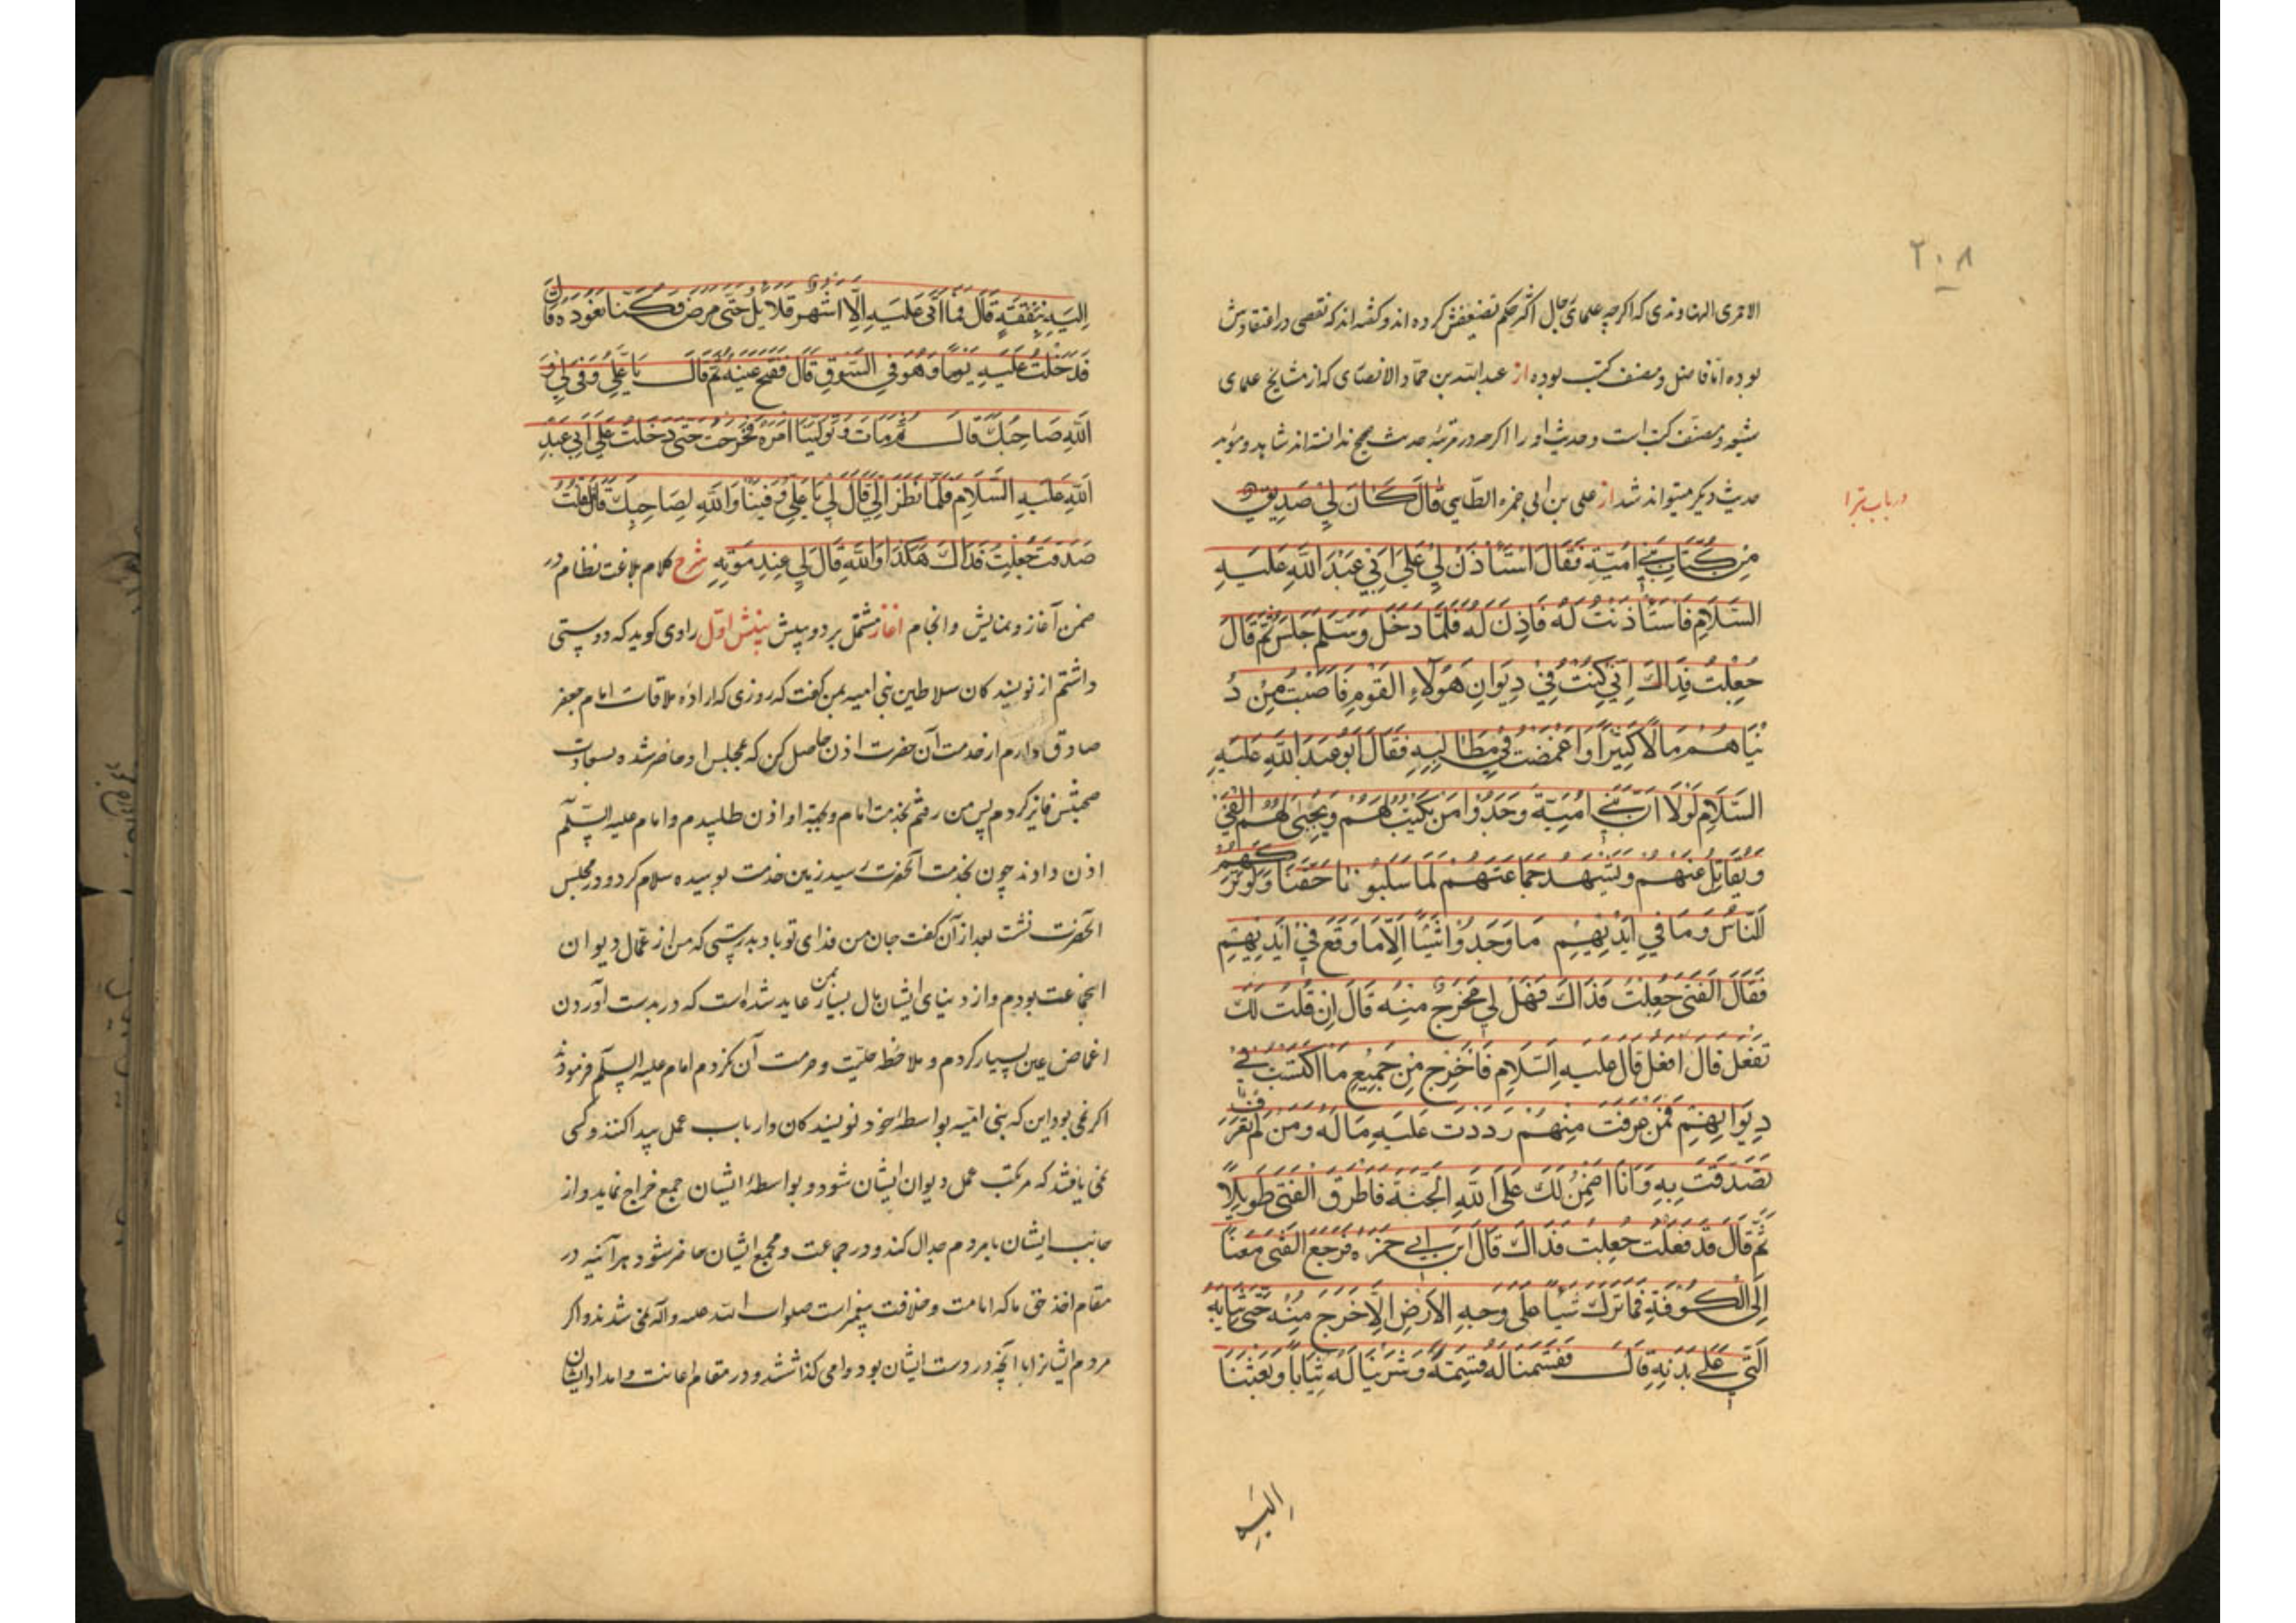 ٢٠٨
الاحمری النهاوندی که اگرچه علمای رجال اکثر حکم تضعیفش کرده اند و گفته اند که نقصی در اعتقادش
بوده اما فاضل و مصنف کتب بوده از عبدالله بن حماد الانصاری که از مشایخ علمای
شیعه و مصنف کتب است و حدیث او را اگرچه در مرتبه حدیث صحیح ندانسته اند شاهد و مؤید
حدیث دیگر میتواند شد از علی بن ابی حمزه الطایی قَالَ كَانَ لِي صَدِيقٌ
در باب تبرا
مِنْ كُتَّابِ بَنِي اُمَيَّةَ فَقَالَ اسْتَأْذِنْ لِي عَلَى اَبِي عَبْدِ اللّٰهِ عَلَيْهِ
السَّلَامِ فَاسْتَأْذَنْتُ لَهُ فَاَذِنَ لَهُ فَلَمَّا دَخَلَ وَسَلَّمَ جَلَسَ ثُمَّ قَالَ
جُعِلْتُ فِدَاكَ اِنِّي كُنْتُ فِي دِيوَانِ هٰؤُلَاءِ الْقَوْمِ فَاَصَبْتُ مِنْ دُ
نْيَاهُمْ مَالًا كَثِيْرًا وَاَغْمَضْتُ فِي مَطَالِبِهِ فَقَالَ اَبُو عَبْدِ اللّٰهِ عَلَيْهِ
السَّلَامِ لَوْلَا اَنَّ بَنِي اُمَيَّةَ وَجَدُوا مَنْ يَكْتُبُ لَهُمْ وَيَجْبِي لَهُمُ الْفَيْءَ
وَيُقَاتِلُ عَنْهُمْ وَيَشْهَدُ جَمَاعَتَهُمْ لَمَا سَلَبُونَا حَقَّنَا وَلَوْ تَرَكَهُمُ
النَّاسُ وَمَا فِي اَيْدِيْهِمْ مَا وَجَدُوا شَيْئًا اِلَّا مَا وَقَعَ فِي اَيْدِيْهِمْ
فَقَالَ الْفَتَى جُعِلْتُ فِدَاكَ فَهَلْ لِي مَخْرَجٌ مِنْهُ قَالَ اِنْ قُلْتُ لَكَ
تَفْعَلْ قَالَ اَفْعَلُ قَالَ عَلَيْهِ السَّلَامِ فَاخْرُجْ مِنْ جَمِيعِ مَا اكْتَسَبْتَ فِي
دِيوَانِهِمْ فَمَنْ عَرَفْتَ مِنْهُمْ رَدَدْتَ عَلَيْهِ مَالَهُ وَمَنْ لَمْ تَعْرِفْ
تَصَدَّقْتَ بِهِ وَاَنَا اَضْمَنُ لَكَ عَلَى اللّٰهِ الْجَنَّةَ فَاَطْرَقَ الْفَتَى طَوِيلًا
ثُمَّ قَالَ قَدْ فَعَلْتُ جُعِلْتُ فِدَاكَ قَالَ ابْنُ اَبِي حَمْزَةَ فَرَجَعَ الْفَتَى مَعَنَا
اِلَى الْكُوفَةِ فَمَا تَرَكَ شَيْئًا عَلَى وَجْهِ الْاَرْضِ اِلَّا خَرَجَ مِنْهُ حَتَّى ثِيَابِهِ
الَّتِي عَلَى بَدَنِهِ قَالَ فَقَسَمْنَا لَهُ قِسْمَةً وَشَرَيْنَا لَهُ ثِيَابًا وَبَعَثْنَا
الیه
اِلَيْهِ بِنَفَقَةٍ قَالَ فَمَا اَتَى عَلَيْهِ اِلَّا اَشْهُرٌ قَلَائِلُ حَتَّى مَرِضَ فَكُنَّا نَعُودُهُ قَالَ
فَدَخَلْتُ عَلَيْهِ يَوْمًا وَهُوَ فِي السَّوْقِ قَالَ فَفَتَحَ عَيْنَيْهِ ثُمَّ قَالَ يَا عَلِيُّ وَفَى لِي وَ
اللّٰهِ صَاحِبُكَ قَالَ ثُمَّ مَاتَ وَتَوَلَّيْنَا اَمْرَهُ فَخَرَجْتُ حَتَّى دَخَلْتُ عَلَى اَبِي عَبْدِ
اللّٰهِ عَلَيْهِ السَّلَامِ فَلَمَّا نَظَرَ اِلَيَّ قَالَ لِي يَا عَلِيُّ وَفَيْنَا وَاللّٰهِ لِصَاحِبِكَ قَالَ فَقُلْتُ
صَدَقْتَ جُعِلْتُ فِدَاكَ هٰكَذَا وَاللّٰهِ قَالَ لِي عِنْدَ مَوْتِهِ شرح کلام بلاغت نظام در
ضمن آغاز و نمایش و انجام آغاز مشتمل بر دو بینش بینش اول راوی گوید که دوستی
داشتم از نویسندکان سلاطین بنی امیه بمن گفت که روزی که اراده ملاقات امام جعفر
صادق دارم از خدمت آن حضرت اذن حاصل کن که بمجلس او حاضر شده بسعادت
صحبتش فایز کردم پس من رفتم بخدمت امام و بجهة او اذن طلبیدم و امام علیه السلم
اذن دادند چون بخدمت آنحضرت رسید زمین خدمت بوسیده سلام کرد و در مجلس
آنحضرت نشت بعد از آن گفت جان من فدای تو باد بدرستی که من از عمال دیوان
انجماعت بودم و از دنیای ایشان مال بسیار بمن عاید شده است که در بدست آوردن
اغماض عین بسیار کردم و ملاحظه حلیت و حرمت آن نکردم امام علیه السلم فرمود
اکر نمی بود این که بنی امیه بواسطه خود نویسند کان و ارباب عمل پیدا کنند و کسی
نمی یافتند که مرتکب عمل دیوان ایشان شود و بواسطه ایشان جمع خراج نماید و از
جانب ایشان با مردم جدال کند و در جماعت و مجمع ایشان حاضر شود هر آینه در
مقام اخذ حق ما که امامت و خلافت پیغمبر است صلوات الله علیه و آله نمی شدند و اکر
مردم ایشانرا با آنچه در دست ایشان بود وامی گذاشتند و در مقام اعانت و امداد ایشان